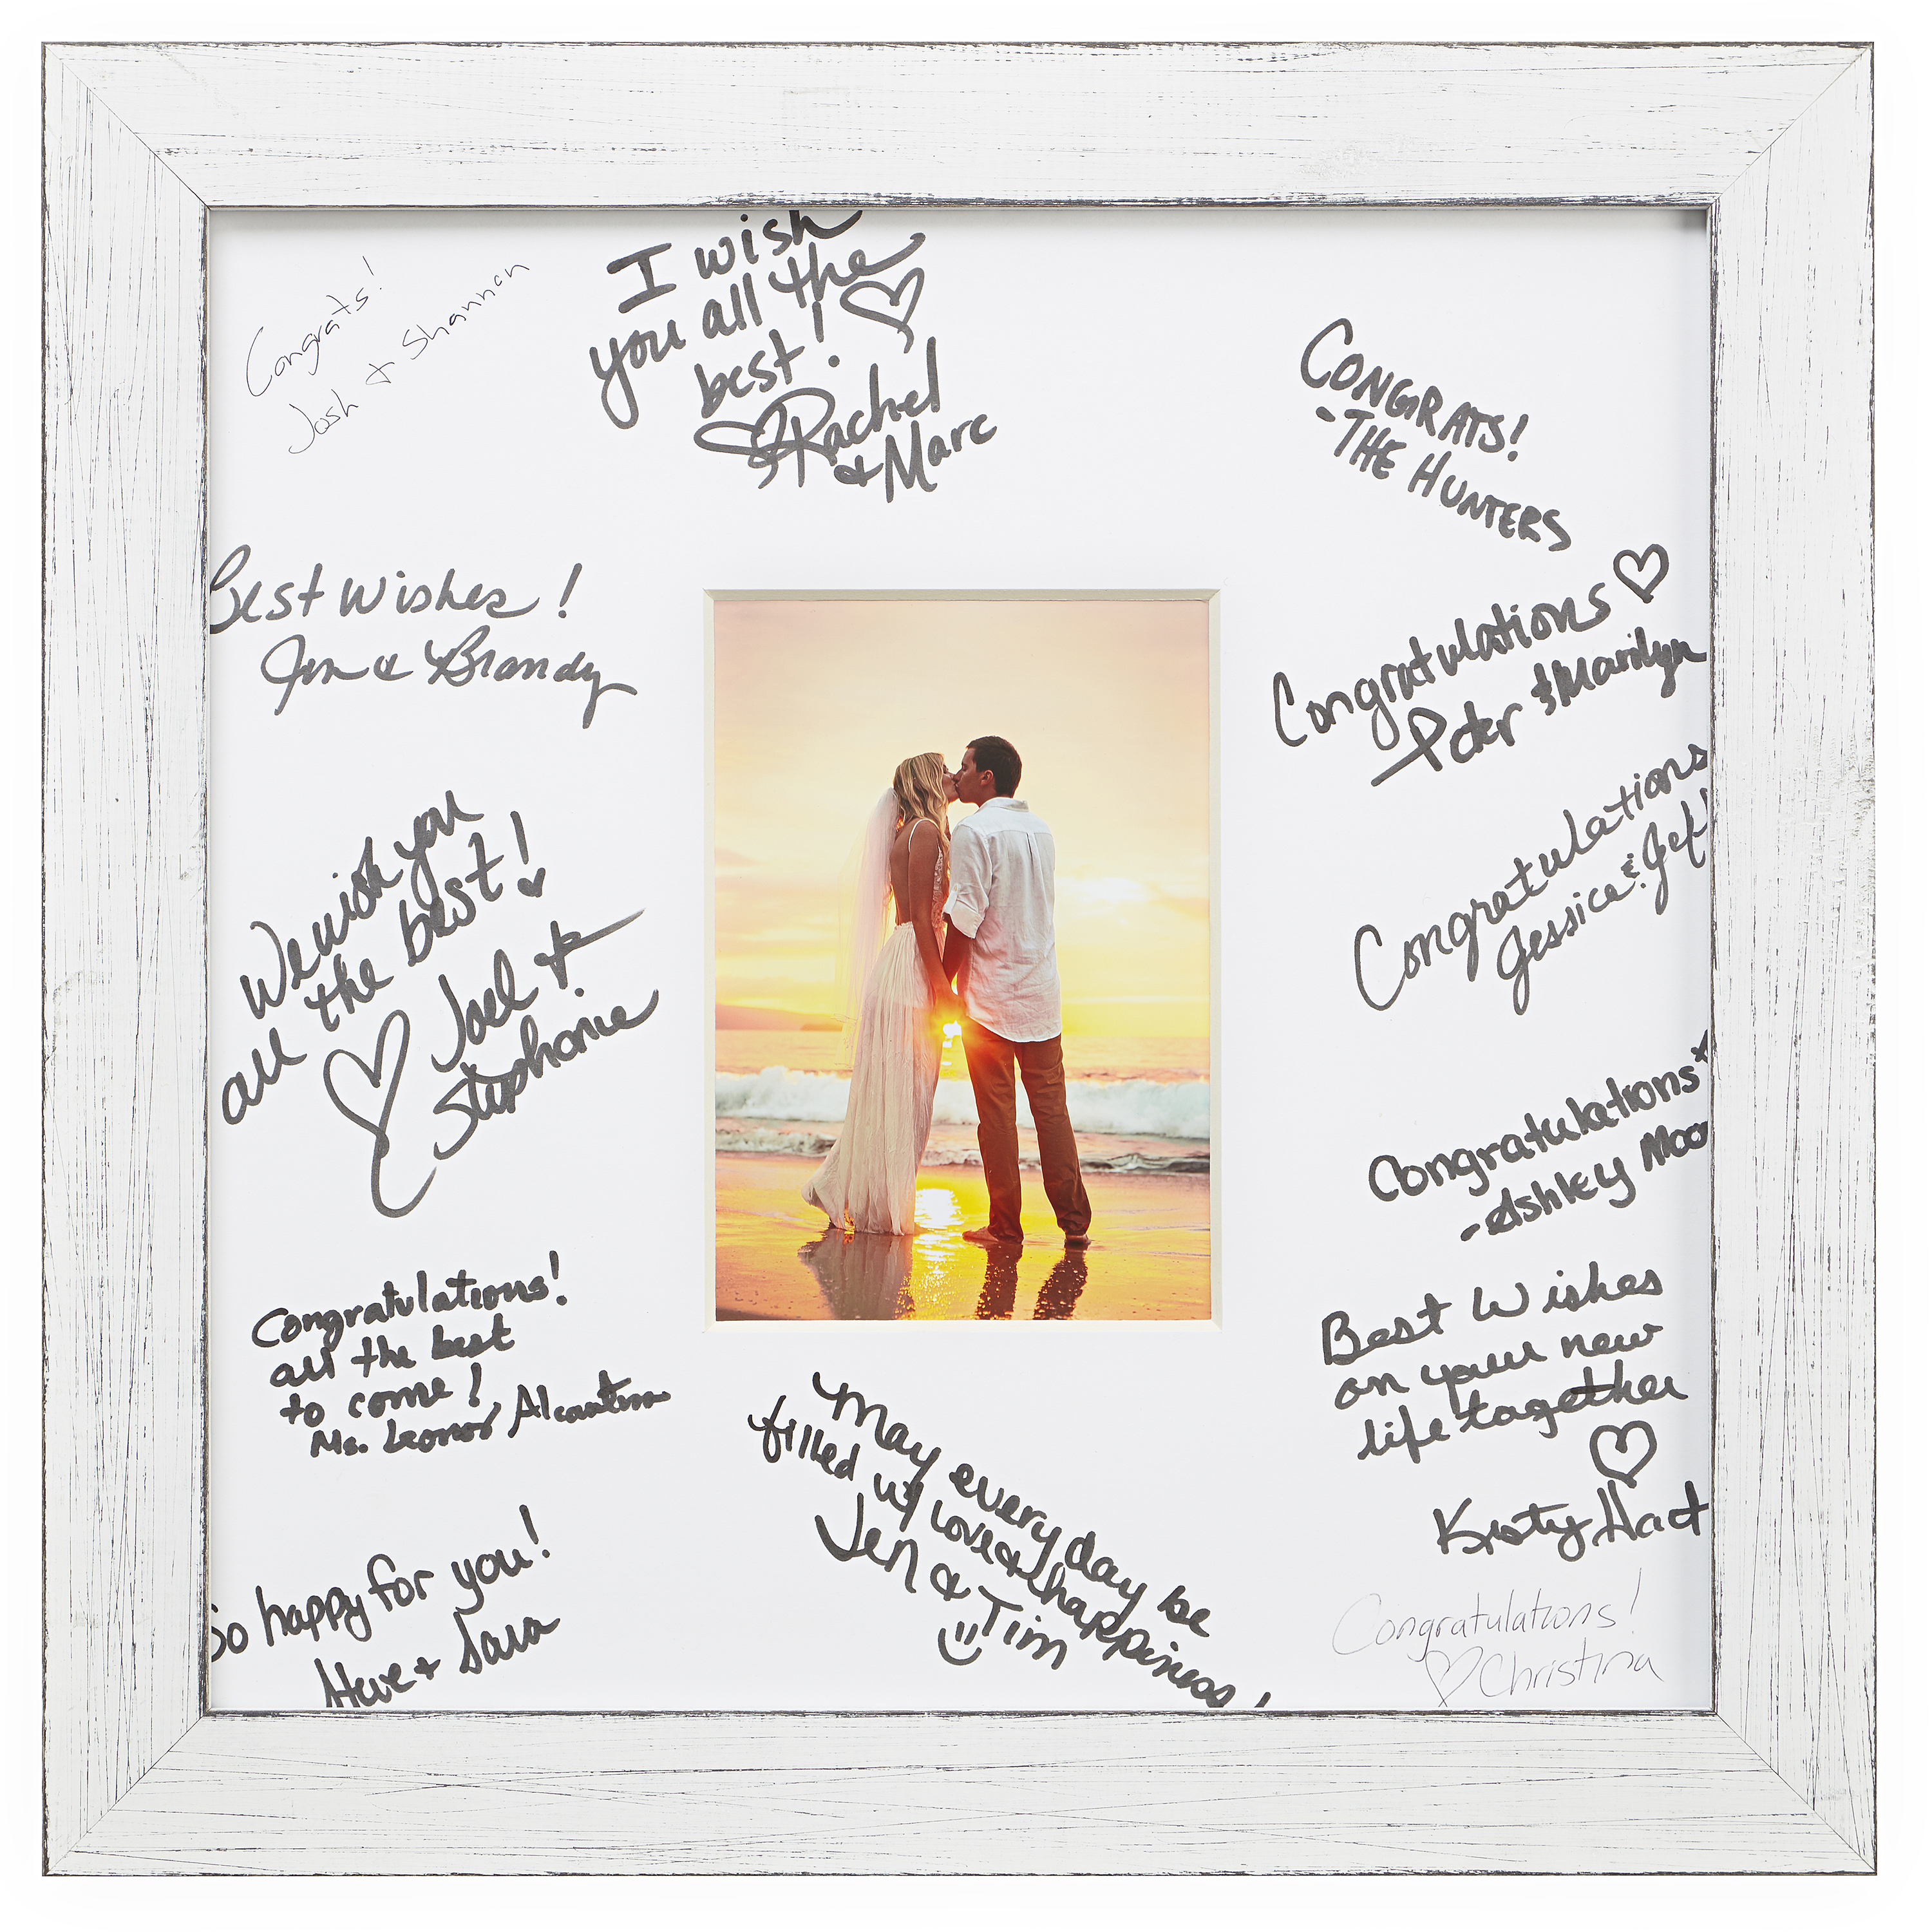 Congrats!
Josh + Shannon
I wish
you all the
best! ♡
♡ Rachel
& Marc
CONGRATS!
-THE HUNTERS
Best Wishes!
Jen & Brandy
Congratulations ♡
Peter & Marilyn
We wish you
all the best!
♡ Joel +
Stephanie
Congratulations
Jessica & Jeff
Congratulations
-Ashley Moo
Congratulations!
all the best
to come!
Ms. Leonor
Best Wishes
on your new
life together
♡
Kristy Hart
May every day be
filled w/ love & happiness!
Jen & Tim
So happy for you!
Steve + Sara
Congratulations!
♡ Christina